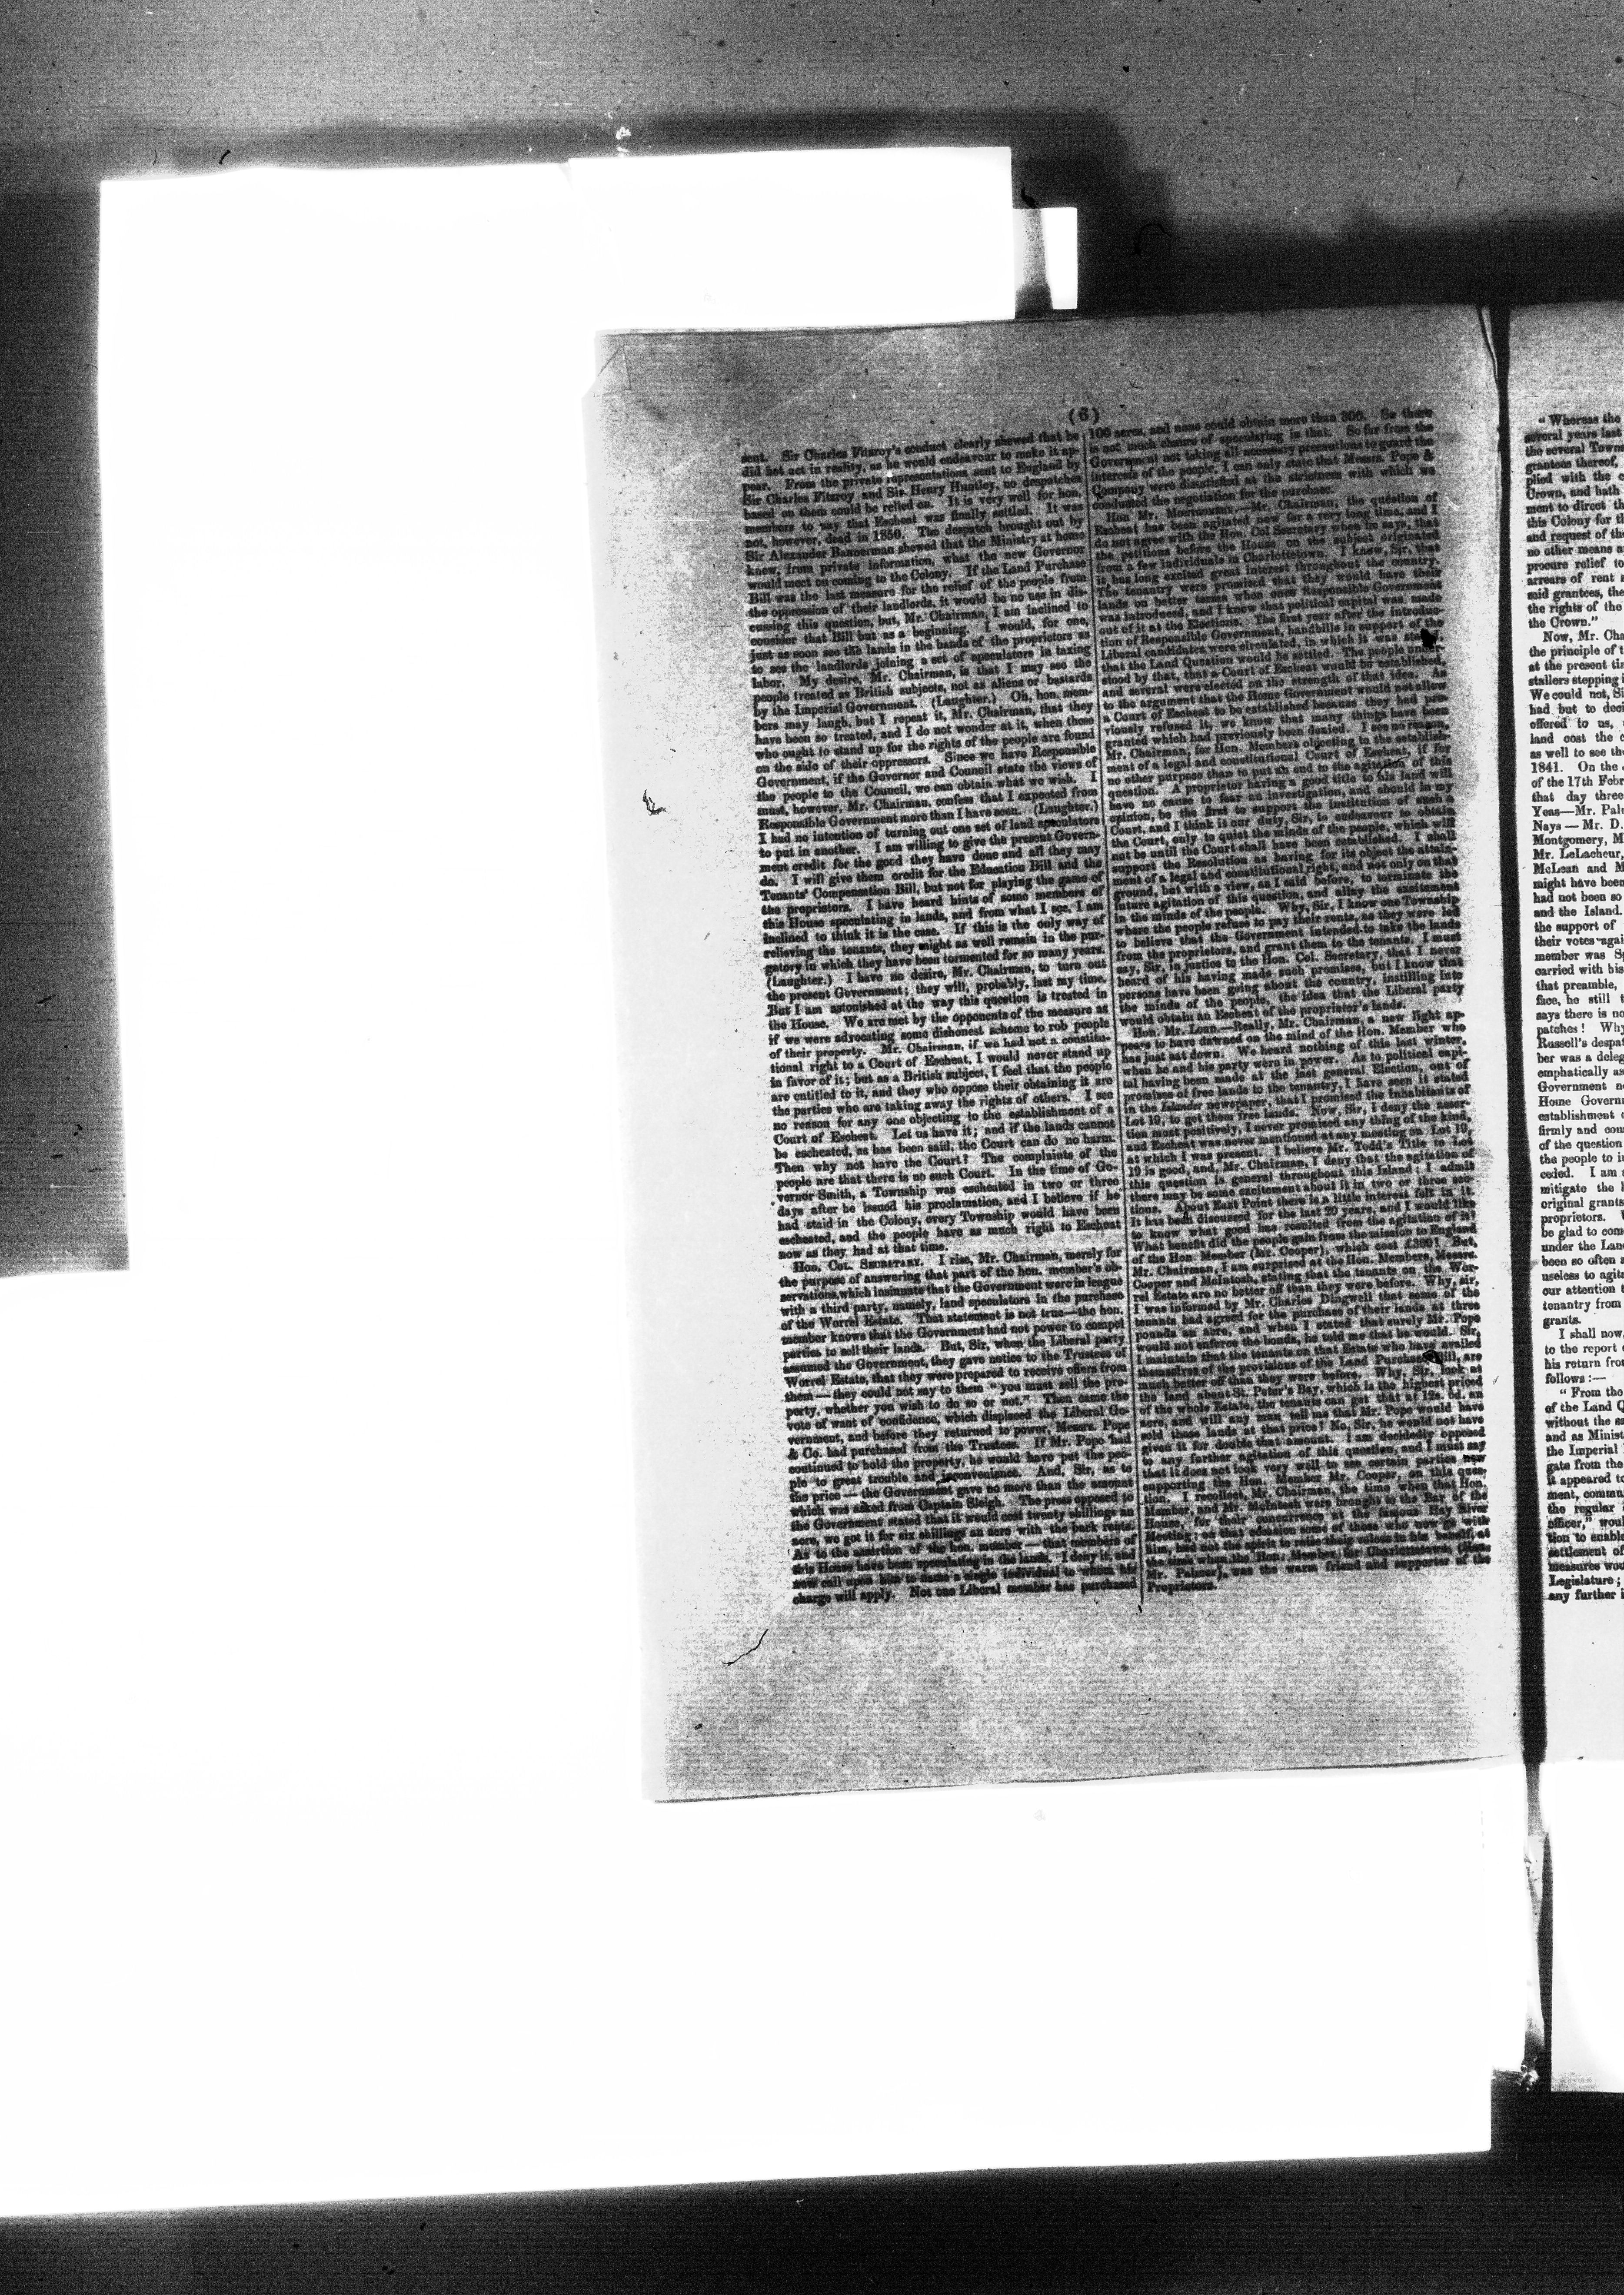 (6)
sent. Sir Charles Fitzroy's conduct clearly shewed that he
did not act in reality, as he would endeavour to make it ap-
pear. From the private representations sent to England by
Sir Charles Fitzroy and Sir Henry Huntley, no despatches
based on them could be relied on. It is very well for hon.
members to way that Escheat was finally settled. It was
not, however, dead in 1850. The despatch brought out by
Sir Alexander Bannerman shewed that the Ministry at home
knew, from private information, what the new Governor
would meet on coming to the Colony. If the Land Purchase
Bill was the last measure for the relief of the people from
the oppression of their landlords, it would be no use in dis-
cussing this question, but, Mr. Chairman, I am inclined to
consider that Bill but as a beginning. I would, for one,
just as soon see the lands in the hands of the proprietors as
to see the landlords joining a set of speculators in taxing
labor. My desire, Mr. Chairman, is that I may see the
people treated as British subjects, not as aliens or bastards
by the Imperial Government. (Laughter.) Oh, hon. mem-
bers may laugh, but I repeat it, Mr. Chairman, that they
have been so treated, and I do not wonder at it, when those
who ought to stand up for the rights of the people are found
on the side of their oppressors. Since we have Responsible
Government, if the Governor and Council state the views of
the people to the Council, we can obtain what we wish. I
must, however, Mr. Chairman, confess that I expected from
Responsible Government more than I have seen. (Laughter.)
I had no intention of turning out one set of land speculators
to put in another. I am willing to give the present Govern-
ment credit for the good they have done and all they may
do. I will give them credit for the Education Bill and the
Tenants' Compensation Bill, but not for playing the game of
the proprietors. I have heard hints of some members of
this House speculating in lands, and from what I see, I am
inclined to think it is the case. If this is the only way of
relieving the tenants, they might as well remain in the pur-
gatory in which they have been tormented for so many years.
(Laughter.) I have no desire, Mr. Chairman, to turn out
the present Government; they will, probably, last my time.
But I am astonished at the way this question is treated in
the House. We are met by the opponents of the measure as
if we were advocating some dishonest scheme to rob people
of their property. Mr. Chairman, if we had not a constitu-
tional right to a Court of Escheat, I would never stand up
in favor of it; but as a British subject, I feel that the people
are entitled to it, and they who oppose their obtaining it are
the parties who are taking away the rights of others. I see
no reason for any one objecting to the establishment of a
Court of Escheat. Let us have it; and if the lands cannot
be escheated, as has been said, the Court can do no harm.
Then why not have the Court? The complaints of the
people are that there is no such Court. In the time of Go-
vernor Smith, a Township was escheated in two or three
days after he issued his proclamation, and I believe if he
had staid in the Colony, every Township would have been
escheated, and the people have as much right to Escheat
now as they had at that time.
Hon. Col. Secretary. I rise, Mr. Chairman, merely for
the purpose of answering that part of the hon. member's ob-
servations, which insinuate that the Government were in league
with a third party, namely, land speculators in the purchase
of the Worrel Estate. That statement is not true—the hon.
member knows that the Government had not power to compel
parties to sell their lands. But, Sir, when the Liberal party
assumed the Government, they gave notice to the Trustees of
Worrel Estate, that they were prepared to receive offers from
them—they could not say to them "you must sell the pro-
perty, whether you wish to do so or not." Then came the
vote of want of confidence, which displaced the Liberal Go-
vernment, and before they returned to power, Messrs. Pope
& Co. had purchased from the Trustees. If Mr. Pope had
continued to hold the property, he would have put the peo-
ple to great trouble and inconvenience. And, Sir, as to
the price—the Government gave no more than the amount
which was asked from Captain Sleigh. The press opposed to
the Government stated that it would cost twenty shillings an
acre, we got it for six shillings an acre with the back rents.
As to the assertion of the hon. member—that members of
this House have been speculating in the lands. I deny it, and
now call upon him to name a single individual to whom his
charge will apply. Not one Liberal member has purchased
100 acres, and none could obtain more than 300. So there
is not much chance of speculating in that. So far from the
Government not taking all necessary precautions to guard the
interests of the people, I can only state that Messrs. Pope &
Company were dissatisfied at the strictness with which we
conducted the negotiation for the purchase.
Hon Mr. Montgomery.—Mr. Chairman, the question of
Escheat has been agitated now for a very long time, and I
do not agree with the Hon. Col Secretary when he says, that
the petitions before the House, on the subject originated
from a few individuals in Charlottetown. I know, Sir, that
it has long excited great interest throughout the country.
The tenantry were promised that they would have their
lands on better terms when once Responsible Government
was introduced, and I know that political capital was made
out of it at the Elections. The first year after the introduc-
tion of Responsible Government, handbills in support of the
Liberal candidates were circulated, in which it was
that the Land Question would be settled. The people under-
stood by that, that a Court of Escheat would be established,
and several were elected on the strength of that idea. As
to the argument that the Home Government would not allow
a Court of Escheat to be established because they had pre-
viously refused it, we know that many things have been
granted which had previously been denied. I see no reason,
Mr. Chairman, for Hon. Members objecting to the establish-
ment of a legal and constitutional Court of Escheat, if for
no other purpose than to put an end to the agitation of this
question. A proprietor having a good title to his land will
have no cause to fear an investigation, and should in my
opinion, be the first to support the institution of such a
Court, and I think it our duty, Sir, to endeavour to obtain
the Court, only to quiet the minds of the people, which will
not be until the Court shall have been established. I shall
support the Resolution as having for its object the attain-
ment of a legal and constitutional right, and not only on that
ground, but with a view, as I said before, to terminate the
future agitation of this question, and allay the excitement
in the minds of the people. Why, Sir, I know one Township
where the people refuse to pay their rents, as they were led
to believe that the Government intended to take the lands
from the proprietors, and grant them to the tenants. I must
say, Sir, in justice to the Hon. Col. Secretary, that I never
heard of his having made such promises, but I know that
persons have been going about the country, instilling into
the minds of the people, the idea that the Liberal party
would obtain an Escheat of the proprietor's lands.
Hon. Mr. Lord.—Really, Mr. Chairman, a new light ap-
pears to have dawned on the mind of the Hon. Member who
has just sat down. We heard nothing of this last winter,
when he and his party were in power. As to political capi-
tal having been made at the last general Election, out of
promises of free lands to the tenantry, I have seen it stated
in the Islander newspaper, that I promised the Inhabitants of
Lot 19, to get them free lands. Now, Sir, I deny the asser-
tion most positively, I never promised any thing of the kind,
and Escheat was never mentioned at any meeting on Lot 19,
at which I was present. I believe Mr. Todd's Title to Lot
19 is good, and, Mr. Chairman, I deny that the agitation of
this question is general throughout this Island; I admit
there may be some excitement about it in two or three sec-
tions. About East Point there is a little interest felt in it.
It has been discussed for the last 20 years, and I would like
to know what good has resulted from the agitation of it?
What benefit did the people gain from the mission to England
of the Hon. Member (Mr. Cooper), which cost £300? But,
Mr. Chairman, I am surprised at the Hon. Members, Messrs.
Cooper and McIntosh, stating that the tenants on the Wor-
rel Estate are no better off than they were before. Why, sir,
I was informed by Mr. Charles Dingwell that some of the
tenants had agreed for the purchase of their lands at three
pounds an acre, and when I stated that surely Mr. Pope
would not enforce the bonds, he told me that he would. Sir,
I maintain that the tenants on that Estate who have availed
themselves of the provisions of the Land Purchase Bill, are
much better off than they were before. Why, Sir, look at
the land about St. Peter's Bay, which is the highest priced
of the whole Estate, the tenants can get that at 12s. 6d. an
acre, and will any man tell me that Mr. Pope would have
sold those lands at that price? No, Sir, he would not have
given it for double that amount. I am decidedly opposed
to any further agitation of this question, and I must say
that it does not look very well to see certain parties now
supporting the Hon. Member Mr. Cooper, on this ques-
tion. I recollect, Mr. Chairman, the time when that Hon.
Member, and Mr. McIntosh were brought to the Bar of the
House, for their concurrence at the famous Hay River
Meeting; on that occasion some of those who now go with
him, had not the spirit to raise their voices in his behalf, at
the time when the Hon. Member for Charlottetown, (Hon.
Mr. Palmer), was the warm friend and supporter of the
Proprietors.
"Whereas the
several years last
the several Town
grantees thereof,
plied with the
Crown, and hath
ment to direct th
this Colony for th
and request of the
no other means a
procure relief to
arrears of rent
said grantees, the
the rights of the
the Crown."
Now, Mr. Cha
the principle of t
at the present tim
stallers stepping i
We could not, Si
had but to deci
offered to us,
land cost the
as well to see th
1841. On the
of the 17th Febr
that day three
Yeas—Mr. Pal
Nays—Mr. D.
Montgomery, M
Mr. LeLacheur,
McLean and M
might have been
had not been so
and the Island.
the support of
their votes agai
member was Sp
carried with his
that preamble,
face, he still
says there is no
patches! Why
Russell's despat
ber was a deleg
emphatically as
Government n
Home Govern
establishment
firmly and con
of the question
the people to i
ceded. I am
mitigate the
original grants
proprietors.
be glad to com
under the Land
been so often
useless to agit
our attention
tenantry from
grants.
I shall now
to the report
his return fro
follows:—
"From the
of the Land Q
without the
and as Minist
the Imperial
gate from the
it appeared to
ment, commu
the regular
officer," woul
tion to enable
settlement of
measures wou
Legislature;
any further i